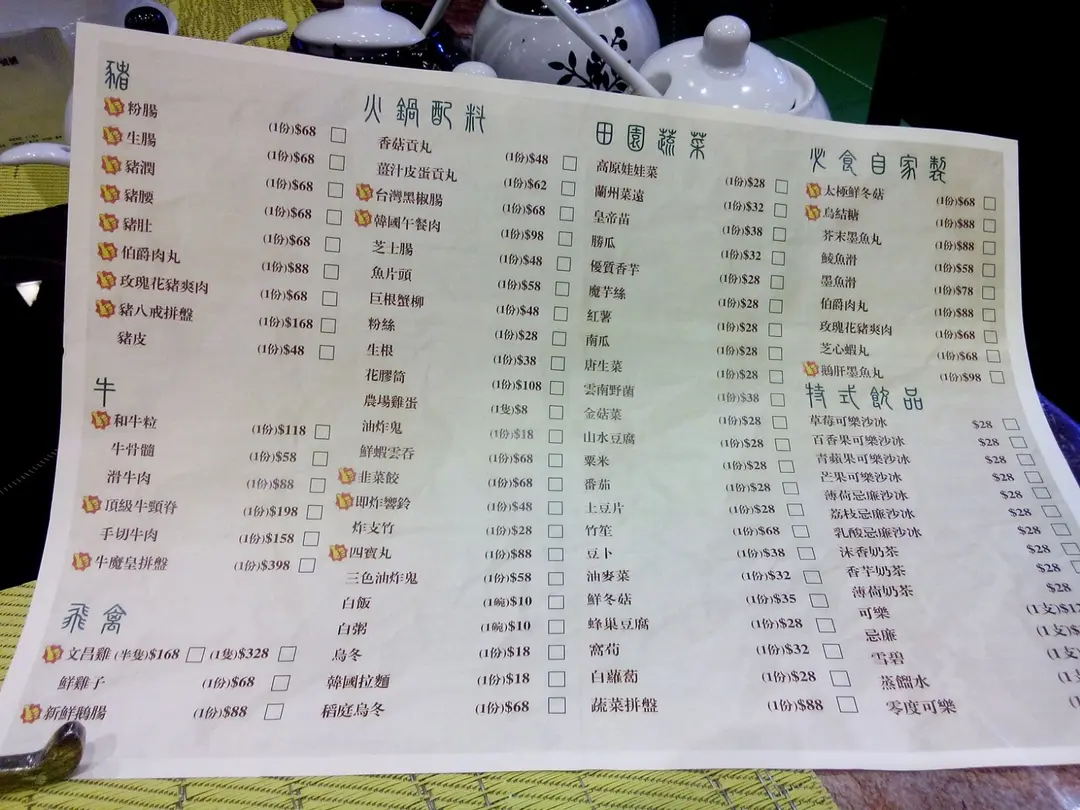 豬
粉腸 (1份)$68
生腸 (1份)$68
豬潤 (1份)$68
豬腰 (1份)$68
豬肚 (1份)$68
伯爵肉丸 (1份)$88
玫瑰花豬爽肉 (1份)$68
豬八戒拼盤 (1份)$168
豬皮 (1份)$48
牛
和牛粒 (1份)$118
牛骨髓 (1份)$58
滑牛肉 (1份)$88
頂級牛頸脊 (1份)$198
手切牛肉 (1份)$158
牛魔皇拼盤 (1份)$398
飛禽
文昌雞 (半隻)$168 (1隻)$328
鮮雞子 (1份)$68
新鮮鵝腸 (1份)$88
火鍋配料
香菇貢丸 (1份)$48
薑汁皮蛋貢丸 (1份)$62
台灣黑椒腸 (1份)$68
韓國午餐肉 (1份)$98
芝士腸 (1份)$48
魚片頭 (1份)$58
巨根蟹柳 (1份)$48
粉絲 (1份)$28
生根 (1份)$38
花膠筒 (1份)$108
農場雞蛋 (1隻)$8
油炸鬼 (1份)$18
鮮蝦雲吞 (1份)$68
韭菜餃 (1份)$68
即炸響鈴 (1份)$48
炸支竹 (1份)$28
四寶丸 (1份)$88
三色油炸鬼 (1份)$58
白飯 (1碗)$10
白粥 (1碗)$10
烏冬 (1份)$18
韓國拉麵 (1份)$18
稻庭烏冬 (1份)$68
田園蔬菜
高原娃娃菜 (1份)$28
蘭州菜遠 (1份)$32
皇帝苗 (1份)$38
勝瓜 (1份)$32
優質香芋 (1份)$28
魔芋絲 (1份)$28
紅薯 (1份)$28
南瓜 (1份)$28
唐生菜 (1份)$28
雲南野菌 (1份)$38
金菇菜 (1份)$28
山水豆腐 (1份)$28
粟米 (1份)$28
番茄 (1份)$28
土豆片 (1份)$28
竹笙 (1份)$68
豆卜 (1份)$38
油麥菜 (1份)$32
鮮冬菇 (1份)$35
蜂巢豆腐 (1份)$28
窩荀 (1份)$32
白蘿蔔 (1份)$28
蔬菜拼盤 (1份)$88
必食自家製
太極鮮冬菇 (1份)$68
鳥結糖 (1份)$88
芥末墨魚丸 (1份)$88
鯪魚滑 (1份)$58
墨魚滑 (1份)$78
伯爵肉丸 (1份)$88
玫瑰花豬爽肉 (1份)$68
芝心蝦丸 (1份)$68
鵝肝墨魚丸 (1份)$98
特式飲品
草莓可樂沙冰 $28
百香果可樂沙冰 $28
青蘋果可樂沙冰 $28
芒果可樂沙冰 $28
薄荷忌廉沙冰 $28
荔枝忌廉沙冰 $28
乳酸忌廉沙冰 $28
沫香奶茶 $28
香芋奶茶 $28
薄荷奶茶 $28
可樂 (1支)$1
忌廉 (1支)$
雪碧 (1支
蒸餾水 (1
零度可樂 (1